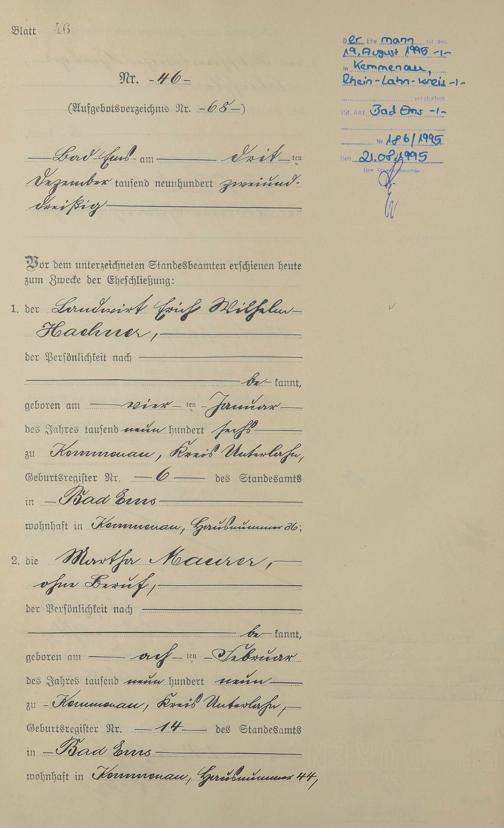 Blatt 46
Nr. -46-
(Aufgebotsverzeichnis Nr. -65-)
Der Ehemann ist am
19. August 1995 -/-
in Kemmenau,
Rhein-Lahn-Kreis -/-
verstorben
(St. Amt Bad Ems -/-
Nr. 186/1995
Den 21.08.1995
Der Standesbeamte
Bad Ems am dritten
Dezember tausend neunhundert zweiund-
dreißig
Vor dem unterzeichneten Standesbeamten erschienen heute
zum Zwecke der Eheschließung:
1. der Landwirt Erich Wilhelm
der Persönlichkeit nach
be kannt,
geboren am vier ten Januar
des Jahres tausend neun hundert sechs
zu Kemmenau, Kreis Unterlahn,
Geburtsregister Nr. 6 des Standesamts
in Bad Ems
wohnhaft in Kemmenau, Hausnummer 36;
2. die Martha Maurer,
ohne Beruf,
der Persönlichkeit nach
be kannt,
geboren am ach ten Februar
des Jahres tausend neun hundert neun
zu Kemmenau, Kreis Unterlahn,
Geburtsregister Nr. 14 des Standesamts
in Bad Ems
wohnhaft in Kemmenau, Hausnummer 44,